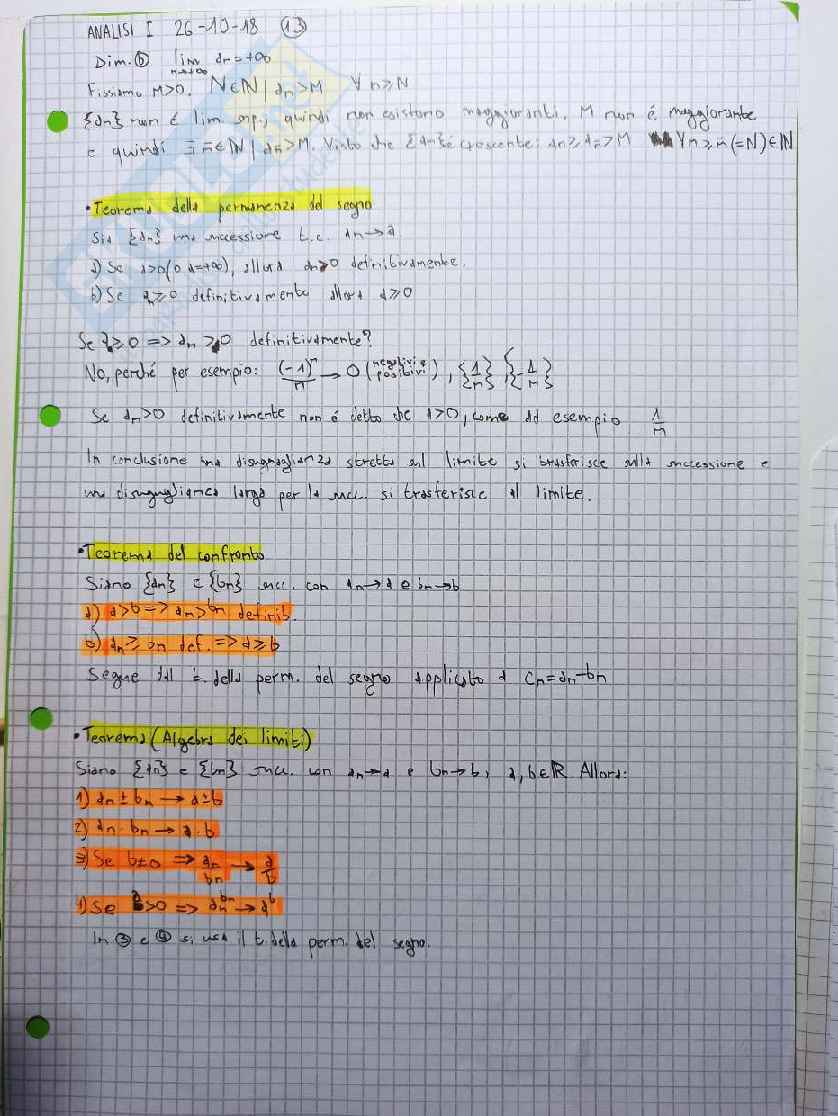 ANALISI I 26-10-18 (13)
Dim. (b) lim an=+∞
n→+∞
Fissiamo M>0. N∈ℕ | an>M ∀n≥N
{an} non é lim sup., quindi non esistono maggioranti. M non é maggiorante
e quindi ∃ n̄∈ℕ | an̄>M. Visto che {an} é crescente: an≥an̄>M ∀n≥n̄(=N)∈ℕ
• Teorema della permanenza del segno
Sia {an} una successione t.c. an→a
a) Se a>0 (o a=+∞), allora an>0 definitivamente.
b) Se an≥0 definitivamente allora a≥0
Se a≥0 => an≥0 definitivamente?
No, perché per esempio: (-1)ⁿ/n → 0 (negativi e positivi), {1/n} {-1/n}
Se an>0 definitivamente non é detto che a>0, come ad esempio 1/n
In conclusione una disuguaglianza stretta sul limite si trasferisce sulla successione e
una disuguaglianza larga per la succ. si trasferisce al limite.
• Teorema del confronto
Siano {an} e {bn} succ. con an→a e bn→b
a) a>b => an>bn definit.
b) an≥bn def. => a≥b
Segue dal t. della perm. del segno applicato a cn=an-bn
• Teorema (Algebra dei limiti)
Siano {an} e {bn} succ. con an→a e bn→b, a,b∈ℝ Allora:
1) an±bn → a±b
2) an·bn → a·b
3) Se b≠0 => an/bn → a/b
4) Se a>0 => an^bn → a^b
In (3) e (4) si usa il t. della perm. del segno.